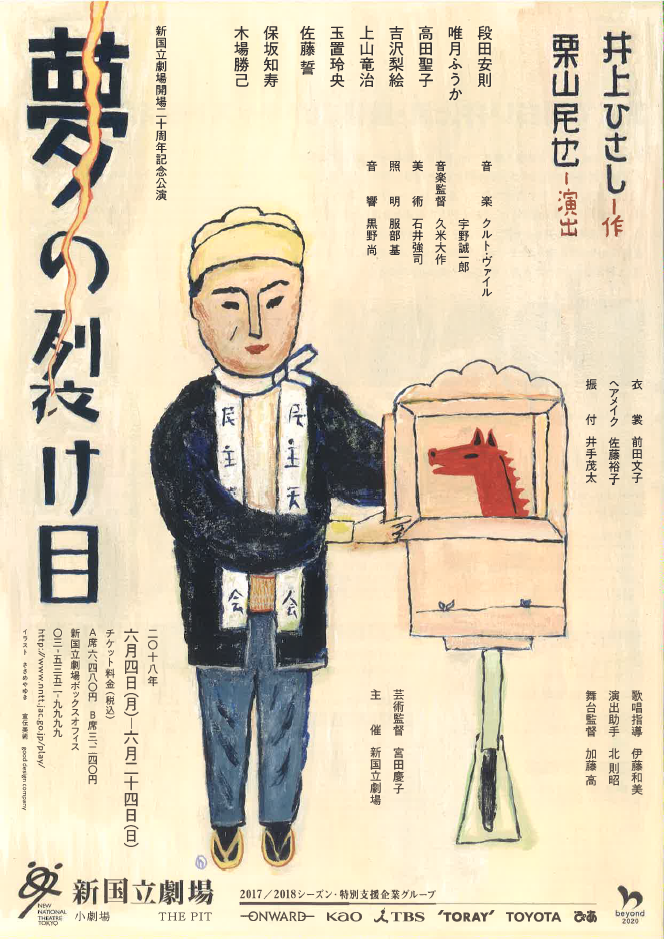 井上ひさし―作
栗山民也―演出
段田安則
唯月ふうか
高田聖子
吉沢梨絵
上山竜治
玉置玲央
佐藤誓
保坂知寿
木場勝己
新国立劇場開場二十周年記念公演
夢の裂け目
音楽 クルト・ヴァイル
宇野誠一郎
音楽監督 久米大作
美術 石井強司
照明 服部基
音響 黒野尚
衣裳 前田文子
ヘアメイク 佐藤裕子
振付 井手茂太
歌唱指導 伊藤和美
演出助手 北則昭
舞台監督 加藤高
芸術監督 宮田慶子
主催 新国立劇場
民主天
会
民主
会
二〇一八年
六月四日(月)―六月二十四日(日)
チケット料金(税込)
A席六、四八〇円 B席三、二四〇円
新国立劇場ボックスオフィス
〇三-五三五二-九九九九
http://www.nntt.jac.go.jp/play/
イラスト ささめやゆき 宣伝美術 good design company
NEW NATIONAL THEATRE TOKYO
新国立劇場
小劇場 THE PIT
2017/2018シーズン・特別支援企業グループ
ONWARD KAO TBS 'TORAY' TOYOTA ぴあ
beyond 2020